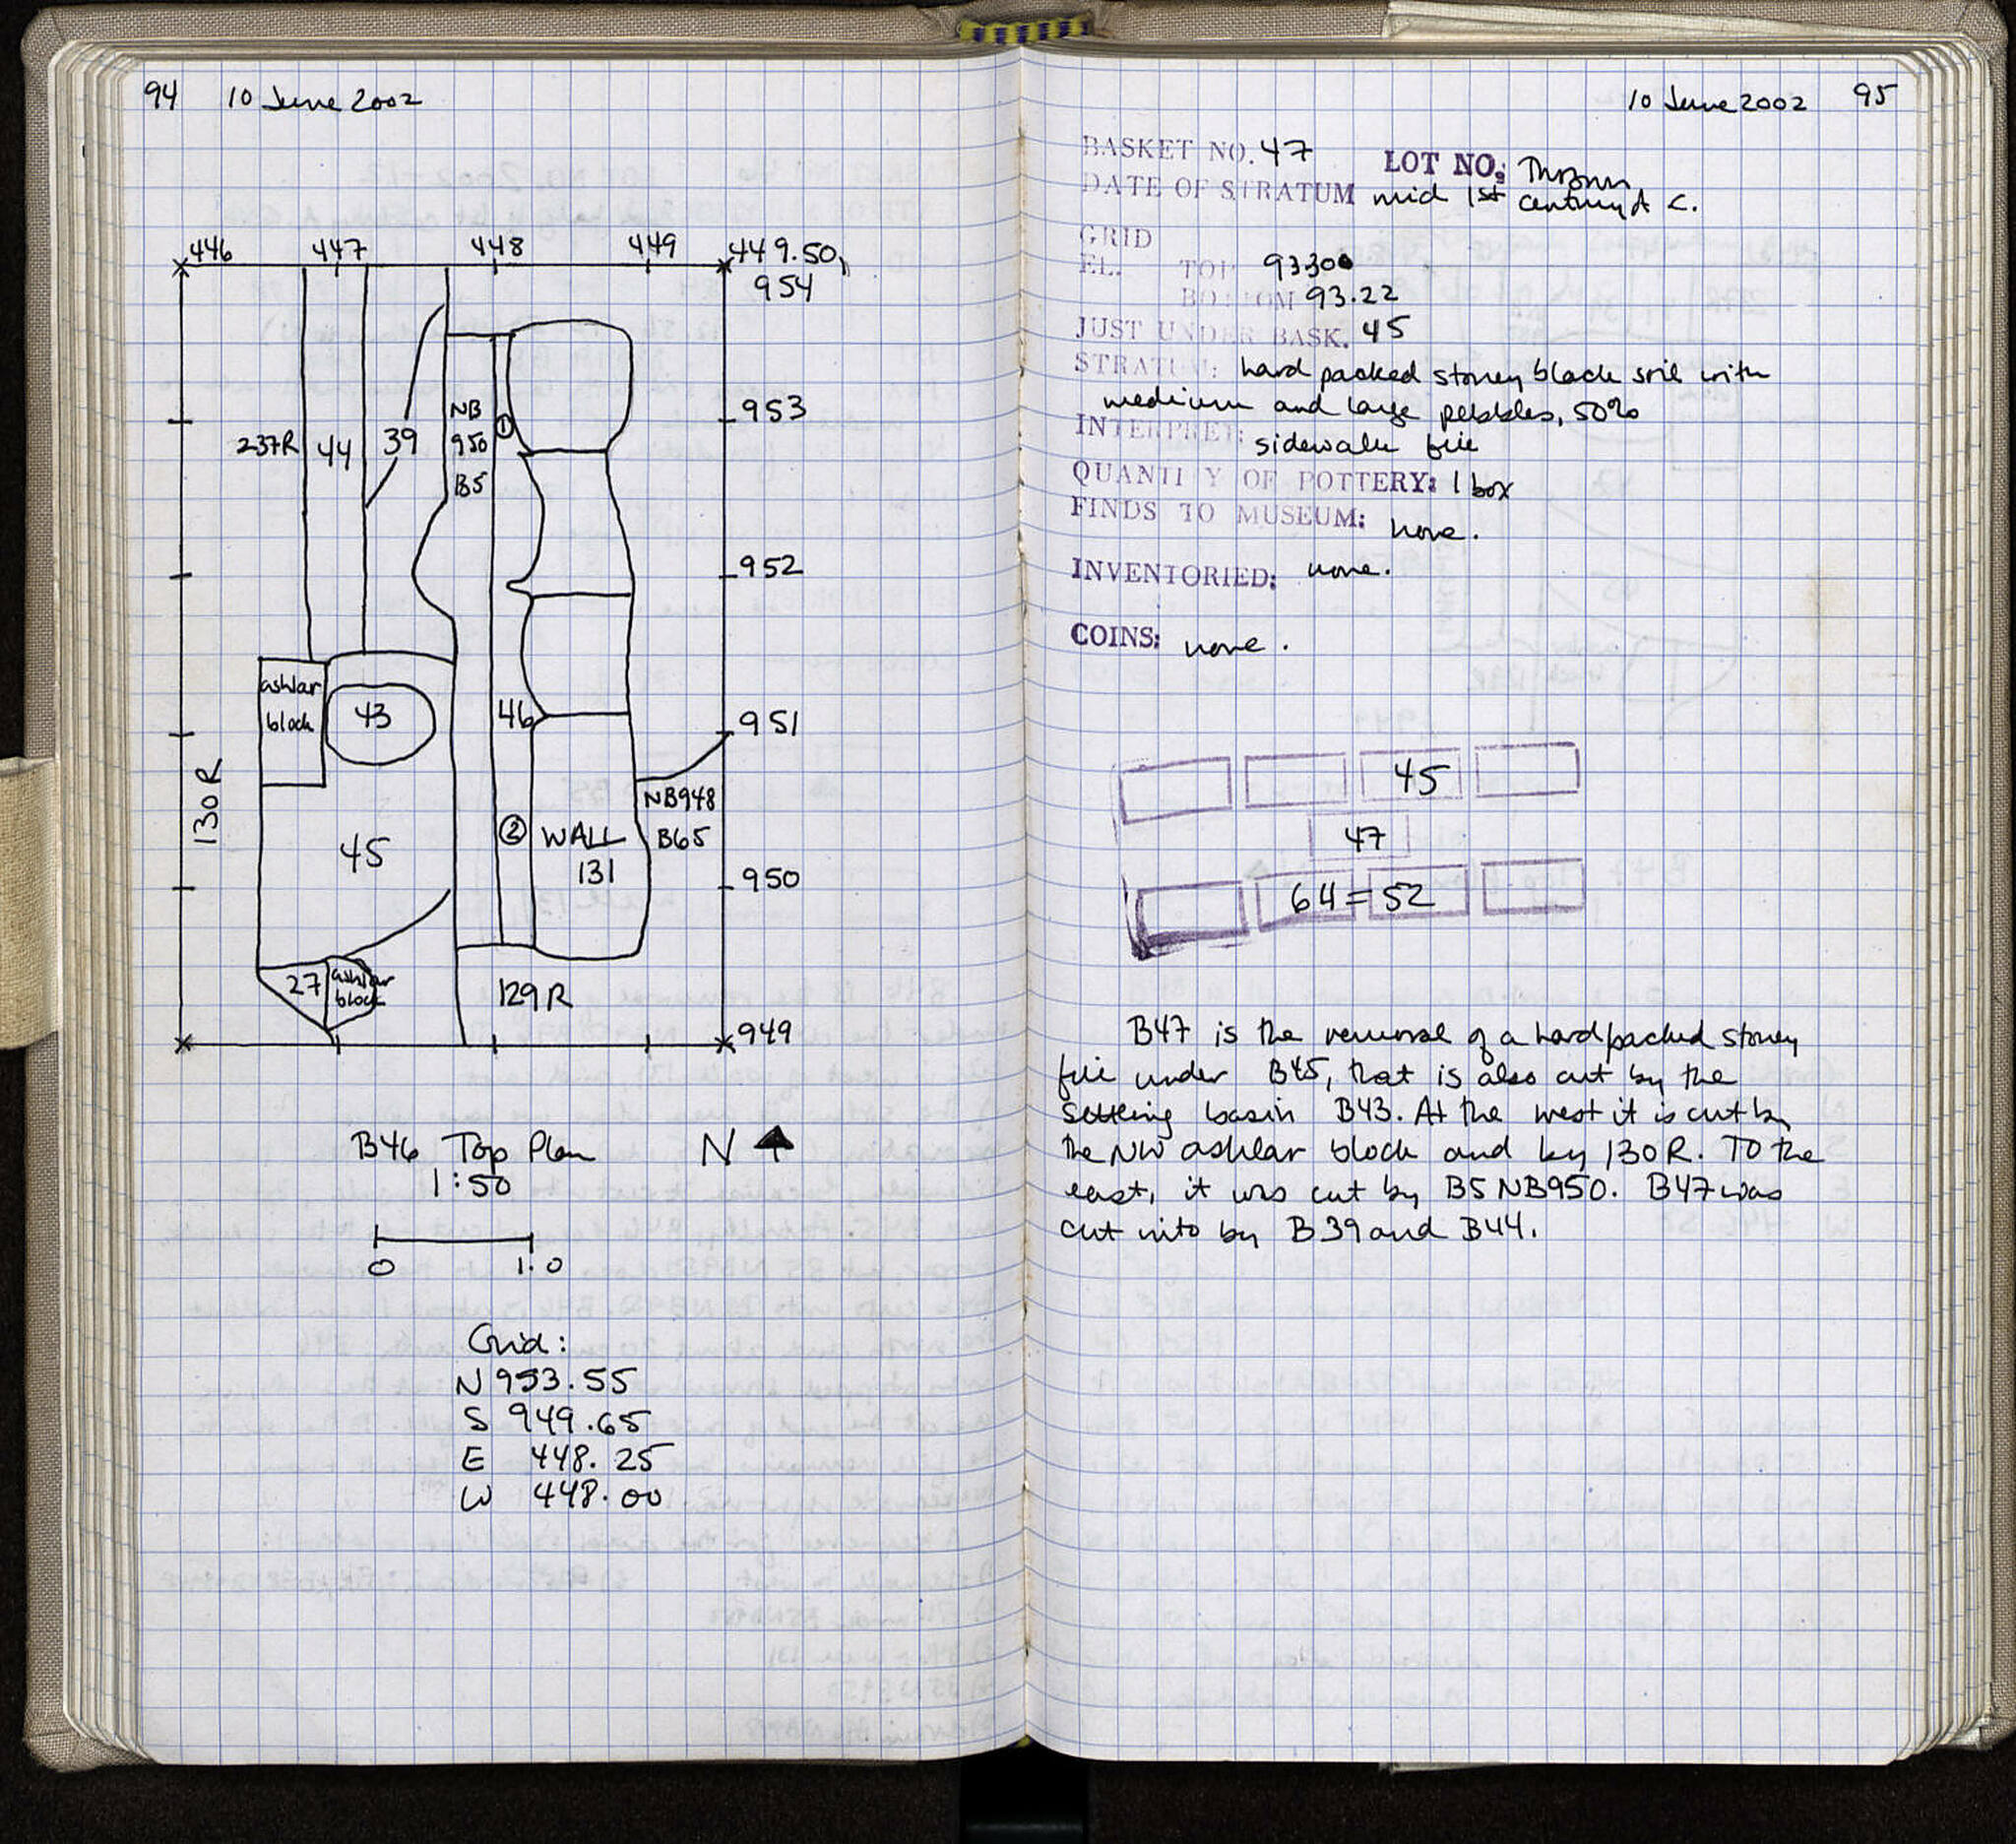 94 10 June 2002
446 447 448 449 449.50,
954
NB
950
B5
①
953
237R 44 39
952
ashlar
block
43
46
951
130 R
NB948
B65
②
WALL
131
45
950
27
ashlar
block
129 R
949
B46 Top Plan
1:50
N
0 1.0
Grid:
N 953.55
S 949.65
E 448.25
W 448.00
10 June 2002 95
BASKET NO. 47 LOT NO: Thrown
DATE OF STRATUM mid 1st century A C.
GRID
EL. TOP 93300
BOTTOM 93.22
JUST UNDER BASK. 45
STRATUM: hard packed stoney black soil with
medium and large pebbles, 50%
INTERPRET: sidewalk fill
QUANTITY OF POTTERY: 1 box
FINDS TO MUSEUM: none.
INVENTORIED: none.
COINS: none.
45
47
64 = 52
B47 is the removal of a hard packed stoney
fill under B45, that is also cut by the
settling basin B43. At the west it is cut by
the NW ashlar block and by 130R. To the
east, it was cut by B5 NB950. B47 was
cut into by B39 and B44.